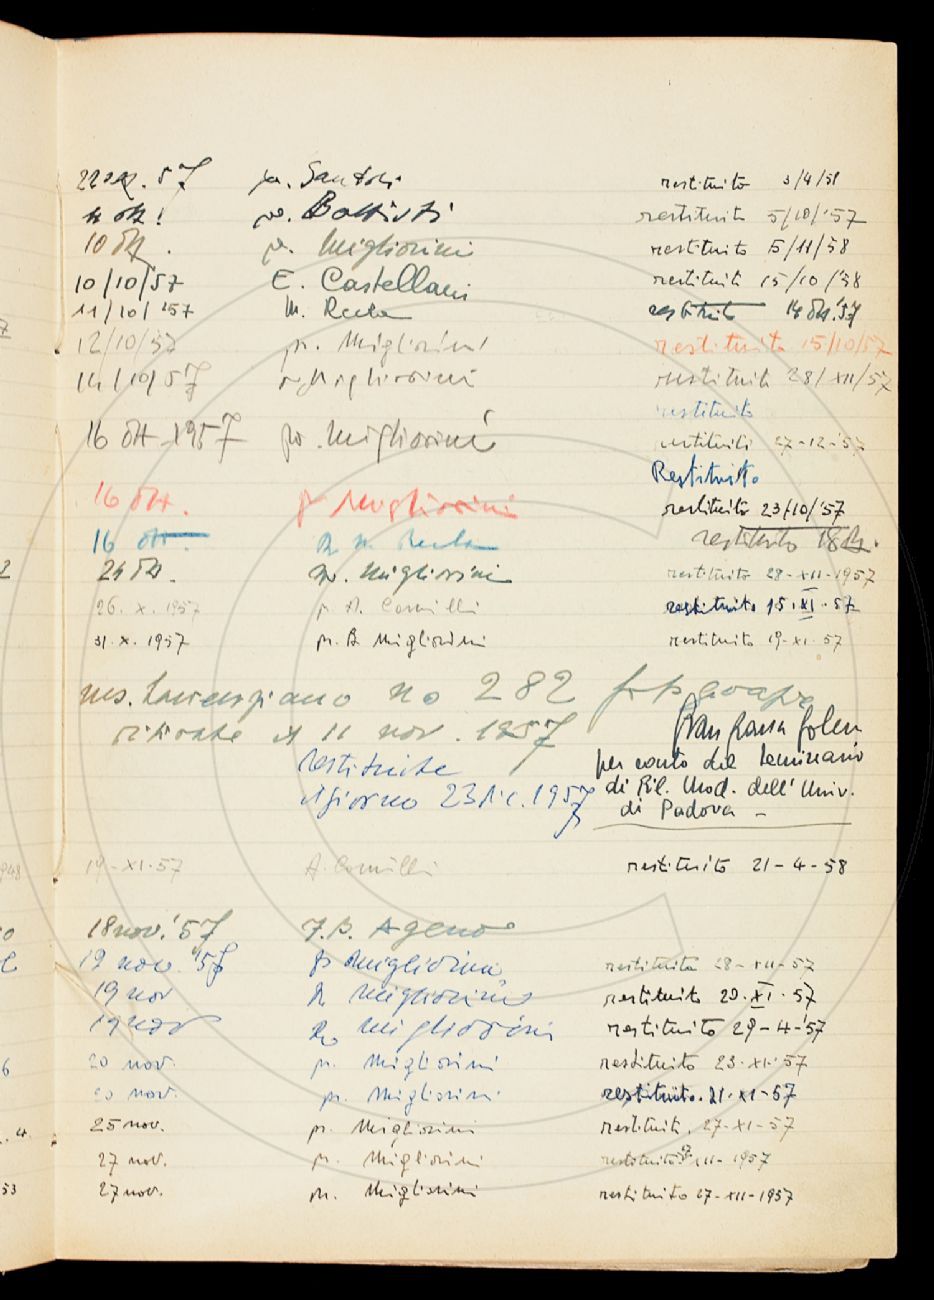 22 57 pr. Santoli restituito 3/4/58
ott. pr. Battisti restituito 5/10/'57
10 ott. pr. Migliorini restituito 5/11/58
10/10/57 E. Castellani restituito 15/10/58
11/10/'57 M. restituito 14 ott. '57
12/10/57 pr. Migliorini restituito 15/10/57
14/10/57 pr. Migliorini restituito 28/XII/57
restituito
16 ott. 1957 pr. Migliorini restituiti 27-12-57
Restituito
16 ott. pr Migliorini restituito 23/10/'57
16 ott. restituito 18 ott.
24 ott. pr. Migliorini restituito 28-XII-1957
26. X. 1957 restituito 15.XI.57
31. X. 1957 pr. B. Migliorini restituito 19-XI-57
ms. Laurenziano no 282 fotografie
ritirate il 11 nov. 1957
restituite
il giorno 23 dic. 1957
per conto del Seminario
di Fil. Mod. dell'Univ.
di Padova -
19-XI-57 restituito 21-4-58
18 nov. '57 F. B. Ageno
19 nov. '57 pr Migliorini restituito 28-XII-57
19 nov pr Migliorini restituito 20.XI.57
19 nov pr Migliorini restituito 29-4-'57
20 nov. pr. Migliorini restituito 23-XI-'57
20 nov. pr. Migliorini restituito. 21-XI-57
25 nov. pr. Migliorini restituito. 27-XI-57
27 nov. pr. Migliorini restituito XII-1957
27 nov. pr. Migliorini restituito 27-XII-1957